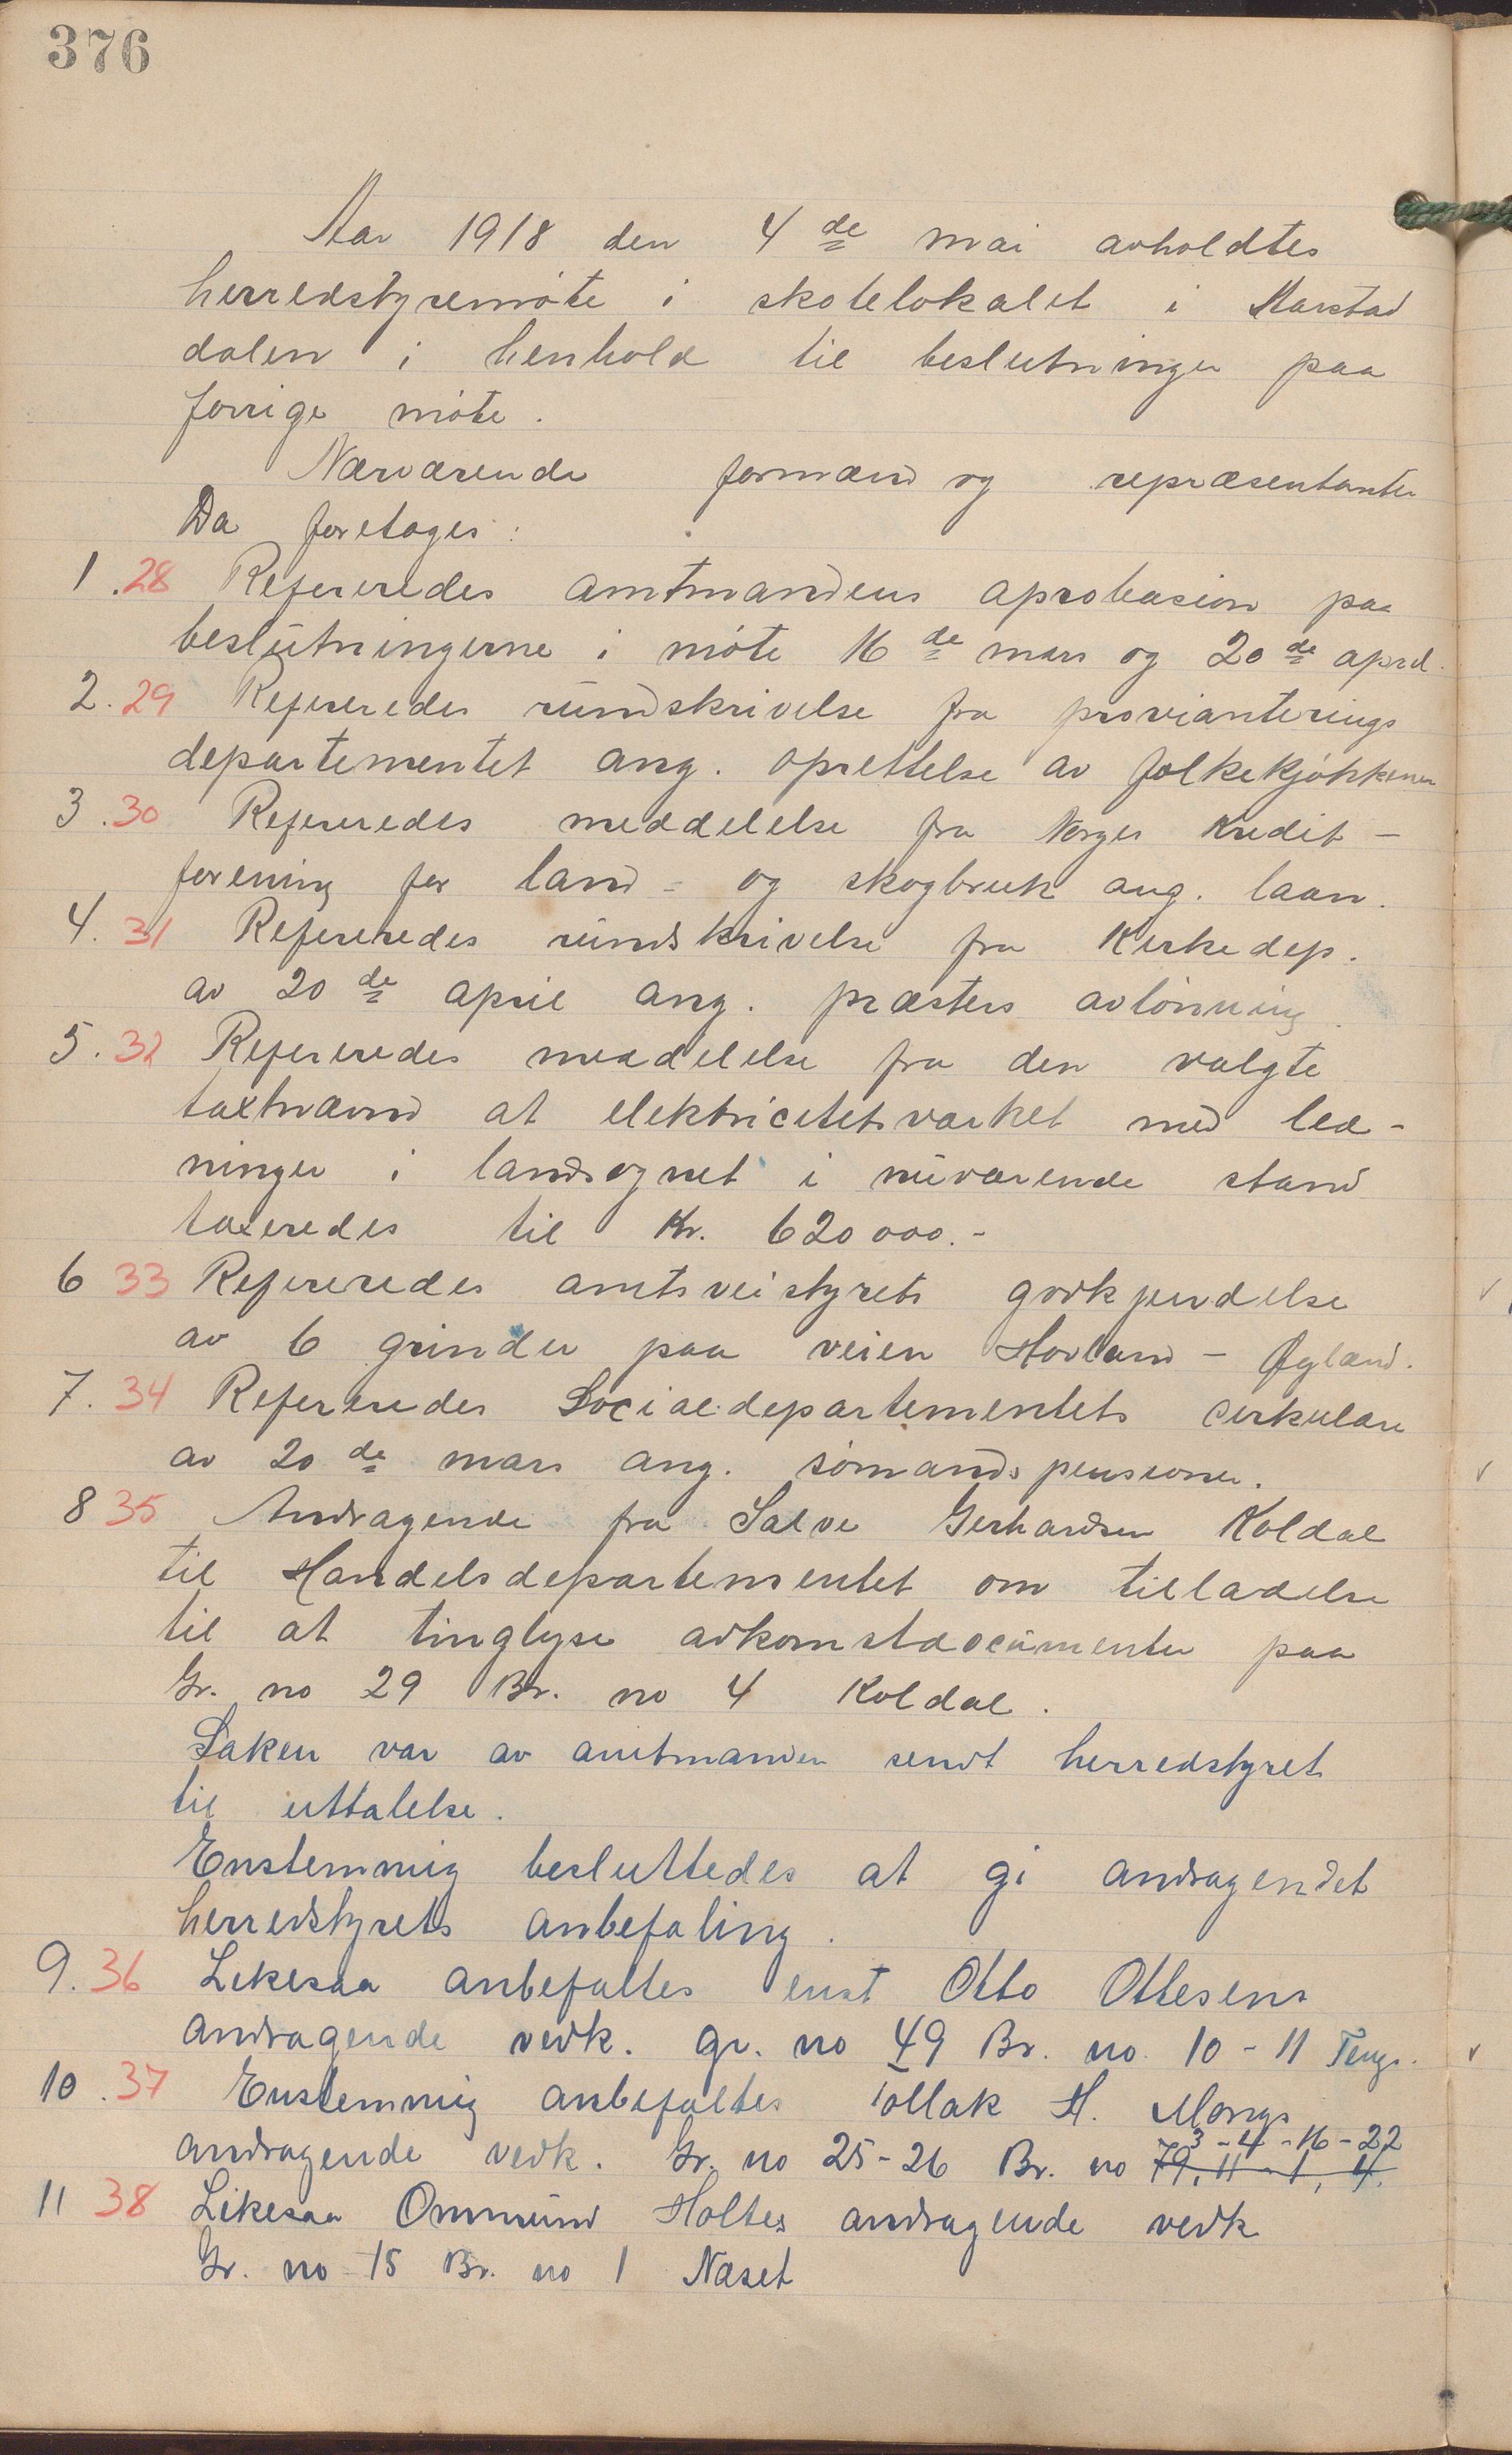 376
Aar 1918 den 4de mai avholdtes
herredstyremöte i skolelokalet i Aarstad
dalen i henhold til beslutninger paa
forrige möte.
Nærværende formænd og repræsentanter
Da foretoges:
1.28 Refereredes amtmandens aprobasion paa
beslutningerne i möte 16de mars og 20de april.
2.29 Refereredes rundskrivelse fra provianterings
departementet ang. oprettelse av folkekjøkkener
3.30 Refereredes meddelelse fra Norges Kredit-
forening for land- og skogbruk ang. laan.
4.31 Refereredes rundskrivelse fra Kirkedep.
av 20de april ang. præsters avlönning.
5.32 Refereredes meddelelse fra den valgte
taxtnævnd at elektricitetsværket med led-
ninger i landsognet i nuværende stand
taxeredes til Kr. 620000.-
6 33 Refereredes amtsveistyrets godkjendelse
av 6 grinder paa veien Hovland - Øgland.
7.34 Refereredes Socialdepartementets cirkulære
av 20de mars ang. sömandspensioner.
8 35 Andragende fra Salve Gerhardsen Koldal
til Handelsdepartementet om tilladelse
til at tinglyse adkomstdocumenter paa
Gr. no 29 Br. no 4 Koldal.
Saken var av amtmanden sendt herredstyret
til uttalelse.
Enstemmig besluttedes at gi andragendet
herredstyrets anbefaling.
9.36 Likesaa anbefaltes enst Otto Ottesens
andragende vedk. gr. no 49 Br. no. 10-11 Tengs.
10.37 Enstemmig anbefaltes Tollak H. Mongs
andragende vedk. Gr. no 25-26 Br. no 79, 11 - 1, 4. 3-4-16-22
11 38 Likesaa Ommund Holtes andragende vedk
Gr. no 15 Br. no 1 Næset